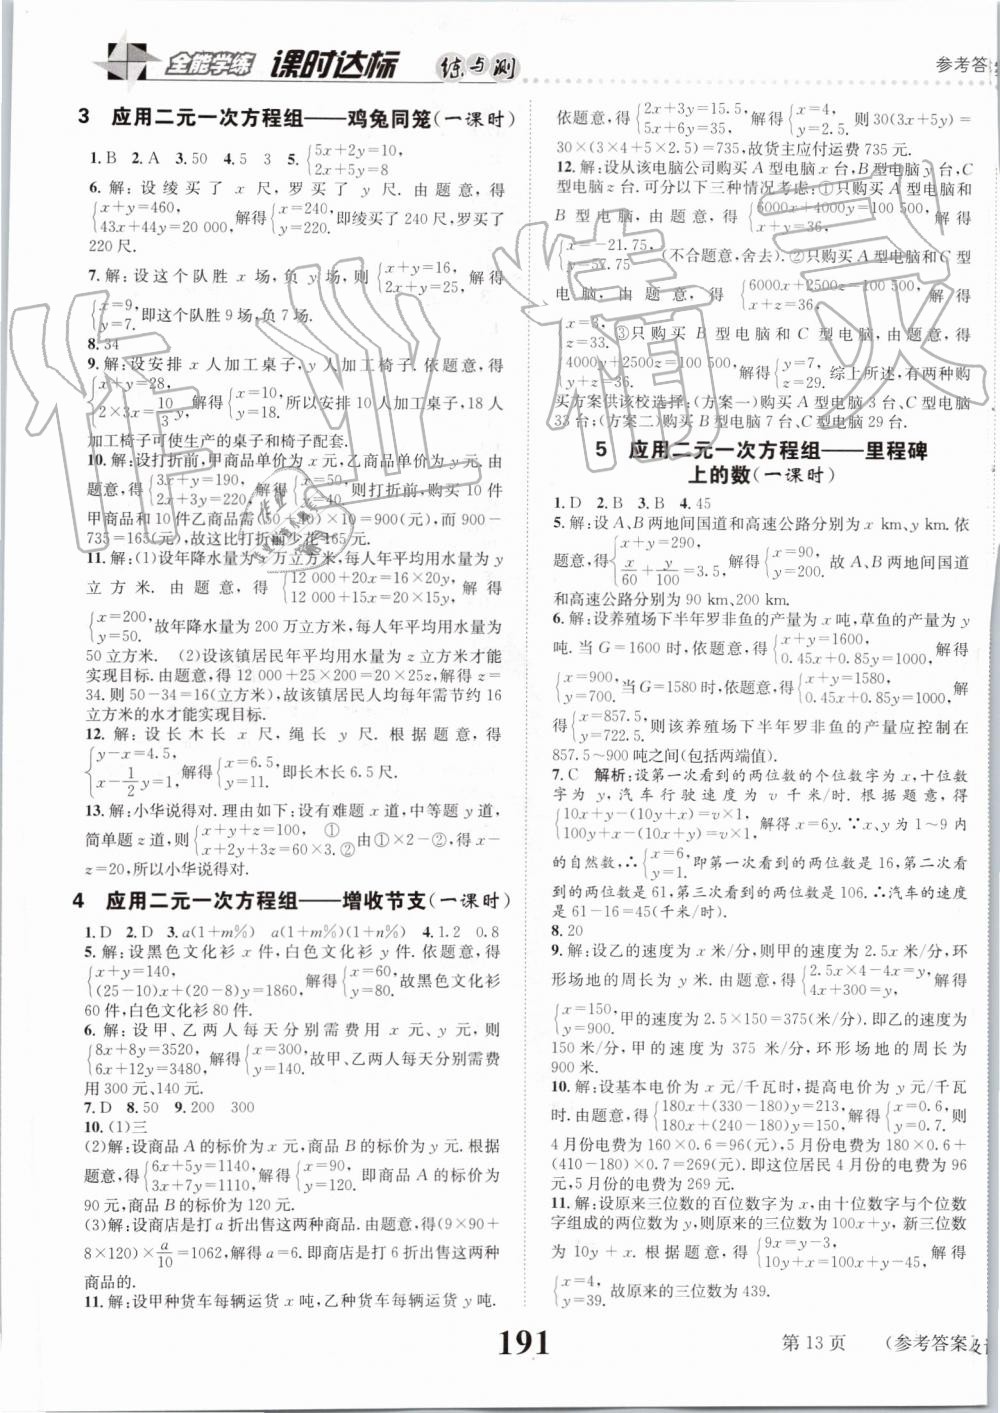 全能学练 课时达标 练与测
参考答
3 应用二元一次方程组——鸡兔同笼(一课时)
1.B 2.A 3.50 4.5 3 5.{5x+2y=10, 2x+5y=8
6.解:设绫买了 x 尺,罗买了 y 尺. 由题意,得
{x+y=460, 43x+44y=20 000, 解得{x=240, y=220, 即绫买了 240 尺,罗买了
220 尺.
7.解:设这个队胜 x 场,负 y 场,则{x+y=16, 2x+y=25, 解得
{x=9, y=7. 即这个队胜 9 场,负 7 场.
8.34
9.解:设安排 x 人加工桌子,y 人加工椅子.依题意,得
{x+y=28, 2×3x=10/3 y, 解得{x=10, y=18. 所以安排 10 人加工桌子,18 人
加工椅子可使生产的桌子和椅子配套.
10.解:设打折前,甲商品单价为 x 元,乙商品单价为 y 元.由
题意,得{3x+y=190, 解得{x=50, y=40. 则打折前,购买 10 件
甲商品和 10 件乙商品需(50+40)×10=900(元),而 900-
735=165(元),故这比打折前少花 165 元.
11.解:(1)设年降水量为 x 万立方米,每人年平均用水量为 y
立方米. 由题意,得{12 000+20x=16×20y, 12 000+15x=20×15y, 解得
{x=200, y=50. 故年降水量为 200 万立方米,每人年平均用水量为
50 立方米. (2)设该镇居民年平均用水量为 z 立方米才能
实现目标.由题意,得 12 000+25×200=20×25z,解得 z=
34.则 50-34=16(立方米),故该镇居民人均每年需节约 16
立方米的水才能实现目标.
12.解:设长木长 x 尺,绳长 y 尺. 根据题意,得
{y-x=4.5, x-1/2 y=1, 解得{x=6.5, y=11, 即长木长 6.5 尺.
13.解:小华说得对.理由如下:设有难题 x 道,中等题 y 道,
简单题 z 道,则{x+y+z=100, ① x+2y+3z=60×3.② 由①×2-②,得 x-z=
20,所以小华说得对.
4 应用二元一次方程组——增收节支(一课时)
1.D 2.D 3.a(1+m%) a(1+m%)(1+n%) 4.1.2 0.8
5.解:设黑色文化衫 x 件,白色文化衫 y 件.依题意,得
{x+y=140, (25-10)x+(20-8)y=1860, 解得{x=60, y=80. 故黑色文化衫
60 件,白色文化衫 80 件.
6.解:设甲、乙两人每天分别需费用 x 元、y 元,则
{8x+8y=3520, 6x+12y=3480, 解得{x=300, y=140. 故甲、乙两人每天分别需费
用 300 元、140 元.
7.D 8.50 9.200 300
10.(1)三
(2)解:设商品 A 的标价为 x 元,商品 B 的标价为 y 元.根据
题意,得{6x+5y=1140, 3x+7y=1110, 解得{x=90, y=120. 即商品 A 的标价为
90 元,商品 B 的标价为 120 元.
(3)解:设商店是打 a 折出售这两种商品.由题意,得(9×90+
8×120)×a/10=1062,解得 a=6.即商店是打 6 折出售这两种
商品的.
11.解:设甲种货车每辆运货 x 吨,乙种货车每辆运货 y 吨.
依题意,得{2x+3y=15.5, 5x+6y=35, 解得{x=4, y=2.5. 则 30(3x+5y)=
30×(3×4+5×2.5)=735,故货主应付运费 735 元.
12.解:设从该电脑公司购买 A 型电脑 x 台,B 型电脑 y 台,C
型电脑 z 台.可分以下三种情况考虑:①只购买 A 型电脑和
B 型电脑,由题意,得{6000x+4000y=100 500, x+y=36, 解得
{x=-21.75, y=57.75 (不合题意,舍去).②只购买 A 型电脑和 C 型
电脑,由题意,得{6000x+2500z=100 500, x+z=36, 解得
{x=3, z=33. ③只购买 B 型电脑和 C 型电脑,由题意,得
{4000y+2500z=100 500, y+z=36. 解得{y=7, z=29. 综上所述,有两种购
买方案供该校选择:(方案一)购买 A 型电脑 3 台、C 型电脑
33 台;(方案二)购买 B 型电脑 7 台、C 型电脑 29 台.
5 应用二元一次方程组——里程碑
上的数(一课时)
1.D 2.B 3.B 4.45
5.解:设 A、B 两地间国道和高速公路分别为 x km、y km.依
题意,得{x+y=290, x/60+y/100=3.5, 解得{x=90, y=200. 故 A、B 两地间国道
和高速公路分别为 90 km、200 km.
6.解:设养殖场下半年罗非鱼的产量为 x 吨,草鱼的产量为 y
吨. 当 G=1600 时,由题意,得{x+y=1600, 0.45x+0.85y=1000, 解得
{x=900, y=700. 当 G=1580 时,由题意,得{x+y=1580, 0.45x+0.85y=1000, 解
得{x=857.5, y=722.5. 则该养殖场下半年罗非鱼的产量应控制在
857.5~900 吨之间(包括两端值).
7.C 解析:设第一次看到的两位数的个位数字为 x,十位数
字为 y,汽车行驶速度为 v 千米/时,根据题意,得
{10x+y-(10y+x)=v×1, 100y+x-(10x+y)=v×1, 解得 x=6y.∵x、y 为 1~9 内
的自然数,∴{x=6, y=1. 即第一次看到的两位数是 16,第二次看
到的两位数是 61,第三次看到的两位数是 106.∴汽车的速度
是 61-16=45(千米/时).
8.20
9.解:设乙的速度为 x 米/分,则甲的速度为 2.5x 米/分,环
形场地的周长为 y 米. 根据题意,得{2.5x×4-4x=y, 4x+300=y, 解得
{x=150, y=900. 甲的速度为 2.5×150=375(米/分).即乙的速度为
150 米/分,甲的速度为 375 米/分,环形场地的周长为
900 米.
10.解:设基本电价为 x 元/千瓦时,提高电价为 y 元/千瓦
时.由题意,得{180x+(330-180)y=213, 180x+(240-180)y=150, 解得{x=0.6, y=0.7, 则
4 月份电费为 160×0.6=96(元),5 月份电费为 180×0.6+
(410-180)×0.7=269(元).即这位居民 4 月份的电费为 96
元,5 月份的电费为 269 元.
11.解:设原来三位数的百位数字为 x,由十位数字与个位数
字组成的两位数为 y,则原来的三位数为 100x+y,新三位数
为 10y+x. 根据题意,得{9x=y-3, 10y+x=100x+y-45, 解得
{x=4, y=39. 故原来的三位数为 439.
191
第 13 页 (参考答案及